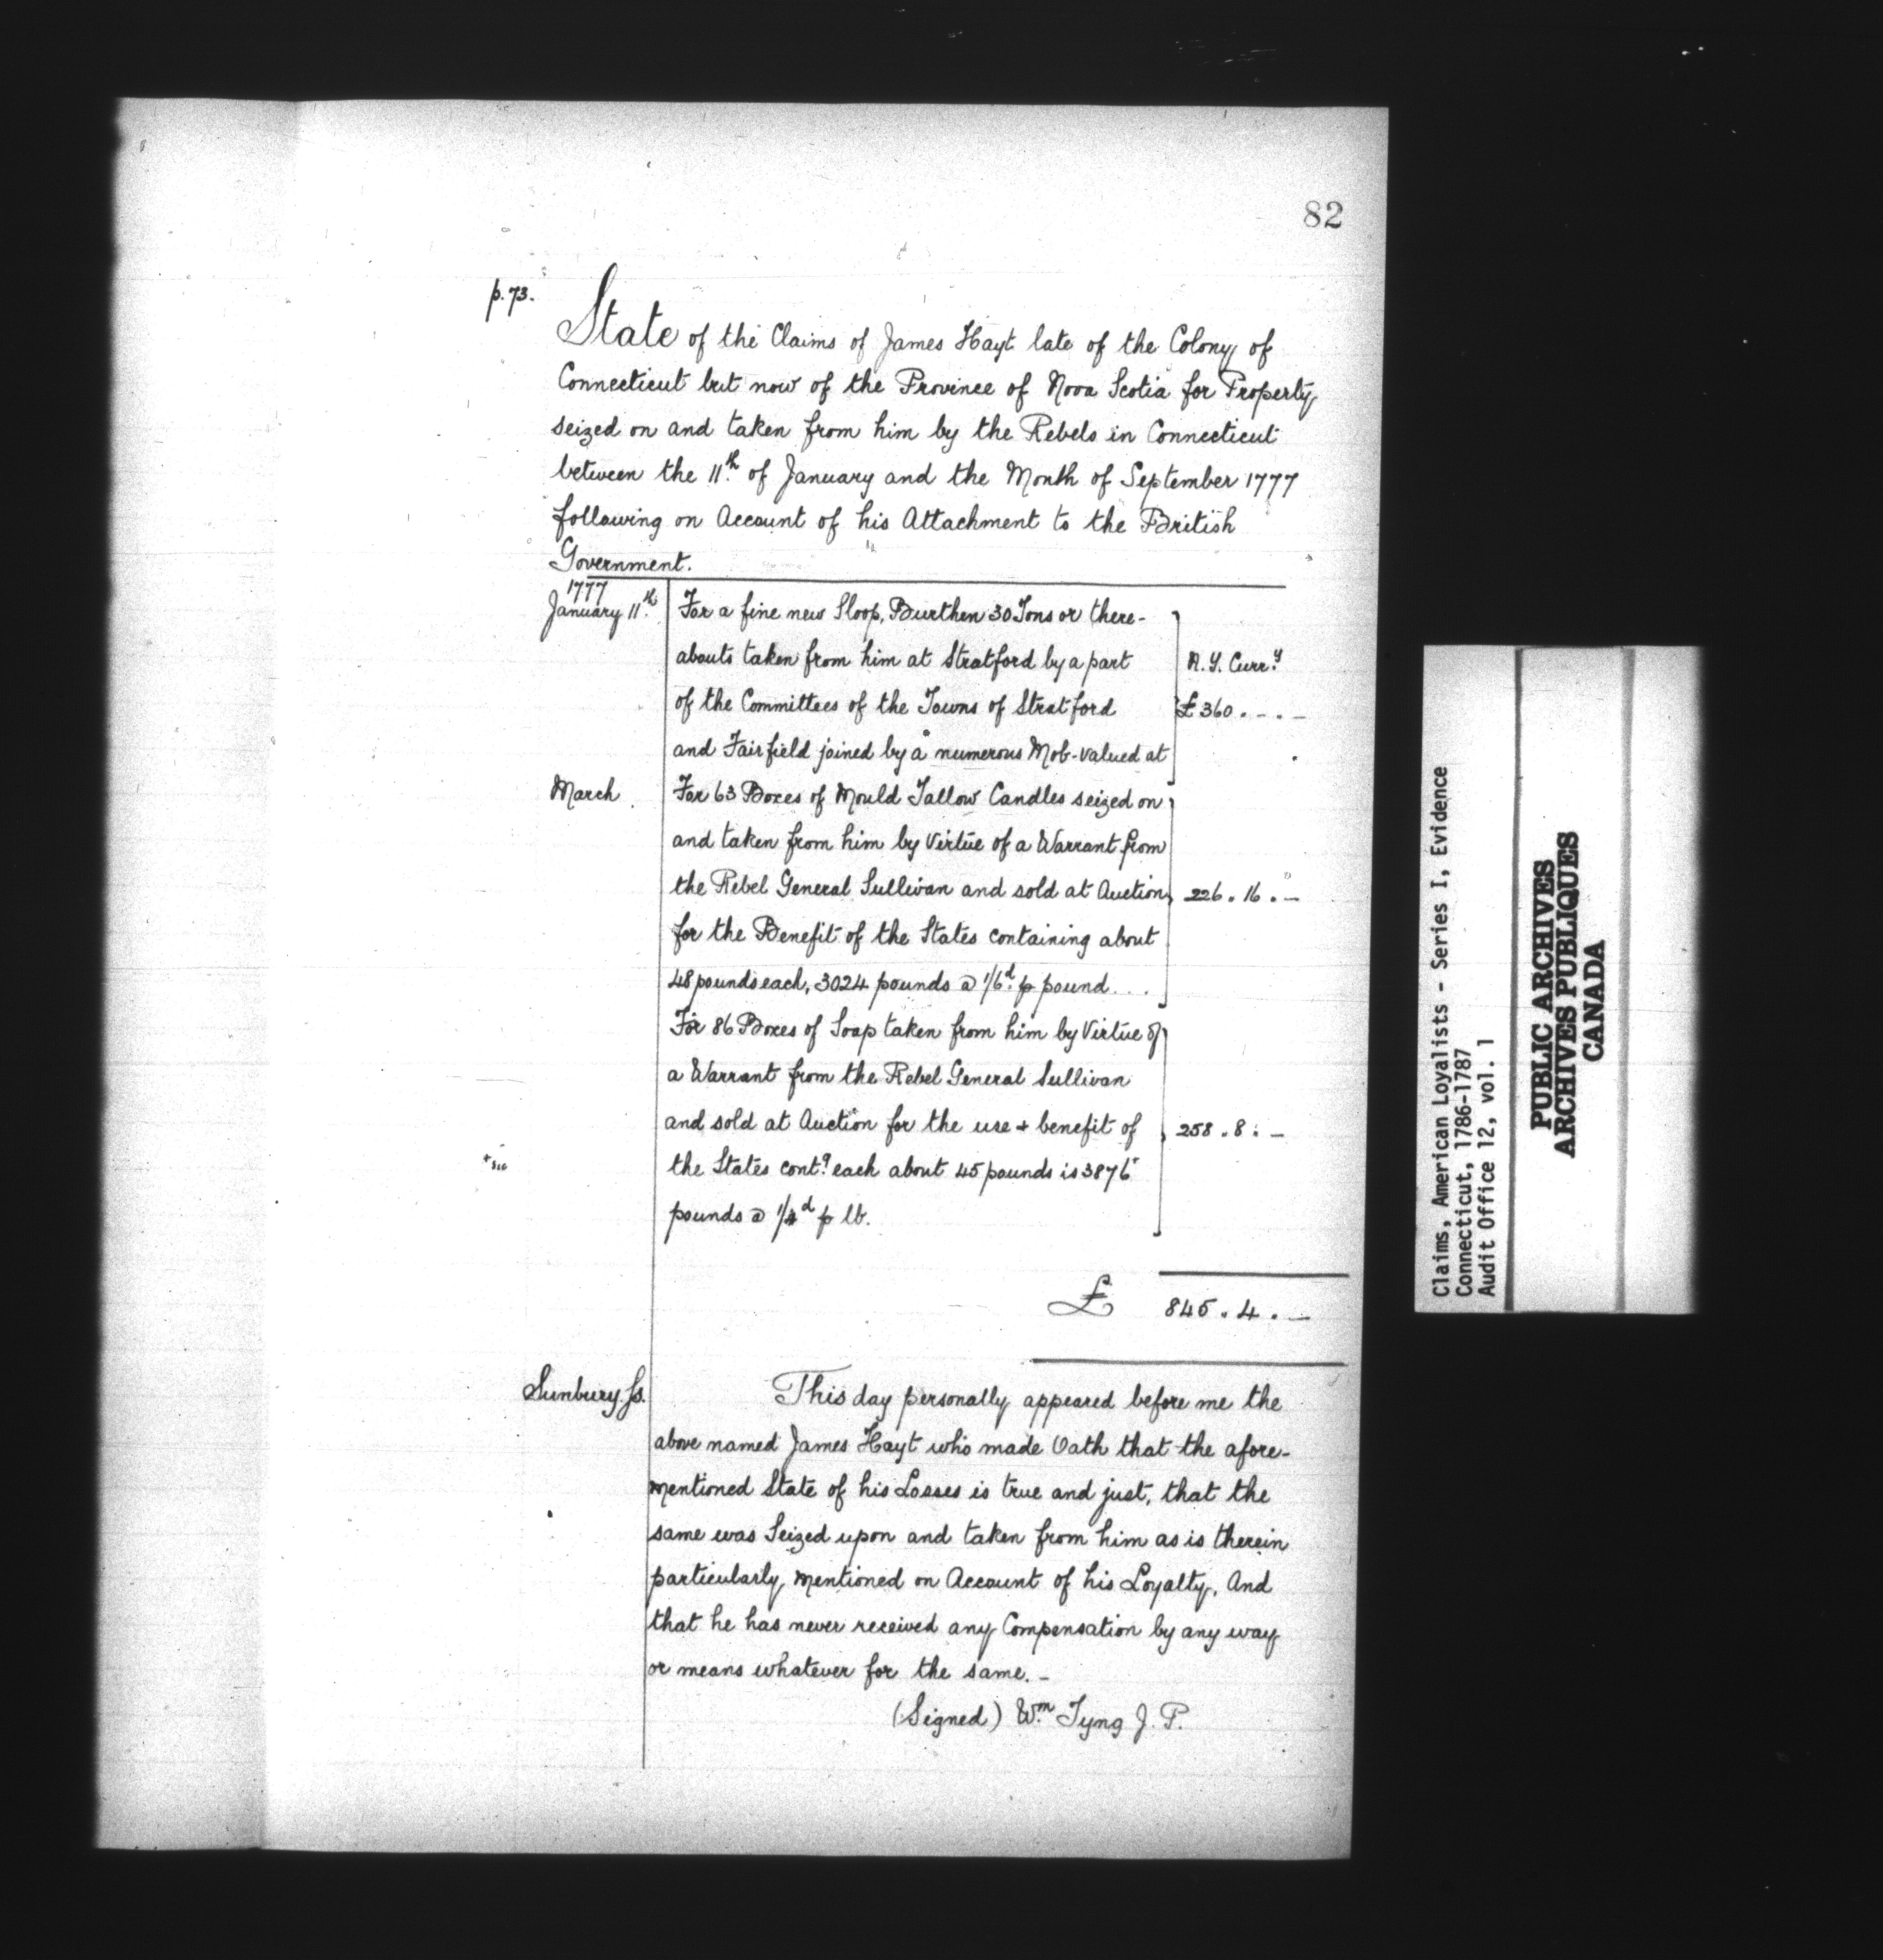 82
p. 73.
State of the Claims of James Hayt late of the Colony of
Connecticut but now of the Province of Nova Scotia for Property
seized on and taken from him by the Rebels in Connecticut
between the 11th of January and the Month of September 1777
following on Account of his Attachment to the British
Government.
1777
January 11th
For a fine new Sloop, Burthen 30 Tons or there-
abouts taken from him at Stratford by a part
of the Committees of the Towns of Stratford
and Fairfield joined by a numerous Mob-valued at
N.Y. Curry
£360. -. -
March
For 63 Boxes of Mould Tallow Candles seized on
and taken from him by Virtue of a Warrant from
the Rebel General Sullivan and sold at Auction
for the Benefit of the States containing about
48 pounds each, 3024 pounds @ 1/6d. p pound...
226. 16. -
For 86 Boxes of Soap taken from him by Virtue of
a Warrant from the Rebel General Sullivan
and sold at Auction for the use + benefit of
the States contg. each about 45 pounds is 3876+
pounds @ 1/4d p lb.
258. 8. -
+ sic
£ 845. 4. -
Sunbury. Ss.
This day personally appeared before me the
above named James Hayt who made Oath that the afore-
mentioned State of his Losses is true and just, that the
same was Seized upon and taken from him as is therein
particularly mentioned on Account of his Loyalty, And
that he has never received any Compensation by any way
or means whatever for the same. -
(Signed) Wm Tyng J. P.
Claims, American Loyalists - Series I, Evidence
Connecticut, 1786-1787
Audit Office 12, vol. 1
PUBLIC ARCHIVES
ARCHIVES PUBLIQUES
CANADA